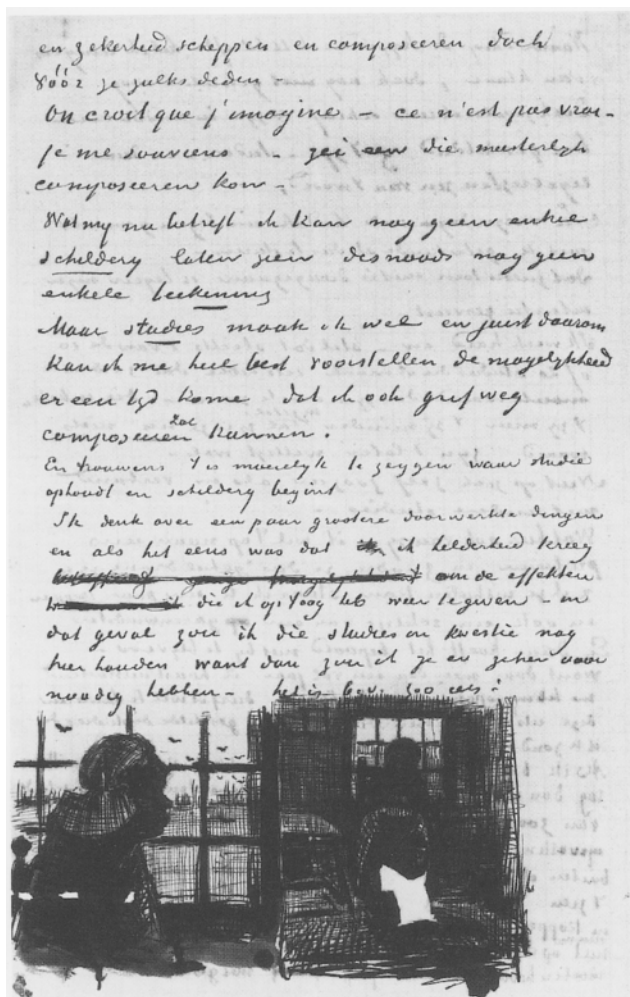 en zekerheid scheppen en composeeren doch
vóór ze zulks deden –
On croit que j'imagine – ce n'est pas vrai –
je me souviens – zei een die meesterlijk
composeeren kon –
Wat mij nu betreft ik kan nog geen enkele
schilderij laten zien desnoods nog geen
enkele teekening
Maar studies maak ik wel en juist daarom
kan ik me heel best voorstellen de mogelijkheid
er een tijd kome dat ik ook grif weg
composeeren zal kunnen.
En trouwens 't is moeielijk te zeggen waar studie
ophoudt en schilderij begint
Ik denk over een paar grootere doorwerkte dingen
en als het eens was dat ik helderheid kreeg
om de effekten
die ik op 't oog heb weer te geven – in
dat geval zou ik die studies in kwestie nog
hier houden want dan zou ik ze er zeker voor
noodig hebben – het is bov. zoo iets: